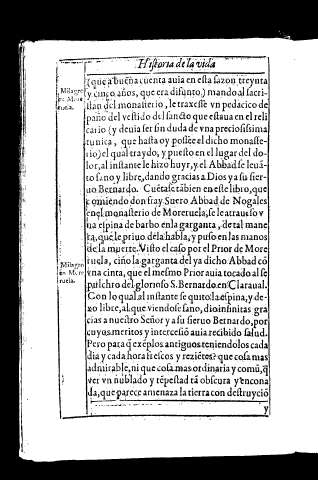 Historia de la vida
(que a buena cuenta auia en esta sazon treynta
y cinco años, que era difunto) mando al sacri-
stan del monasterio, le traxesse vn pedacico de
paño del vestido del sancto que estaua en el reli
cario (y deuia ser sin duda de vna preciosissima
tunica, que hasta oy possee el dicho monaste-
rio) el qual traydo, y puesto en el lugar del do-
lor, al instante le hizo huyr, y el Abbad se leuã-
to sano y libre, dando gracias a Dios y a su sier-
uo Bernardo. Cuẽtase tãbien en este libro, que
comiendo don fray Suero Abbad de Nogales
en el monasterio de Moreruela, se le atrauesso v
na espina de barbo en la garganta, de tal mane
ra, que le priuo dela habla, y puso en las manos
de la muerte. Visto el caso por el Prior de More
ruela, ciño la garganta del ya dicho Abbad cõ
vna cinta, que el mesmo Prior auia tocado al se
pulchro del glorioso S. Bernardo en Claraual.
Con lo qual al instante se quito la espina, y de-
xo libre, al que viendose sano, dio infinitas gra
cias a nuestro Señor y a su sieruo Bernardo, por
cuyos meritos y intercessiõ auia recibido salud.
Pero para q̃ exẽplos antiguos teniendolos cada
dia y cada hora frescos y reziẽtes? que cosa mas
admirable, ni que cosa mas ordinaria y comũ, q̃
ver vn nublado y tẽpestad tã obscura y encona
da, que parece amenaza la tierra con destruyciõ
y
Milagro
en More
ruela.
Milagro
en More
ruela.